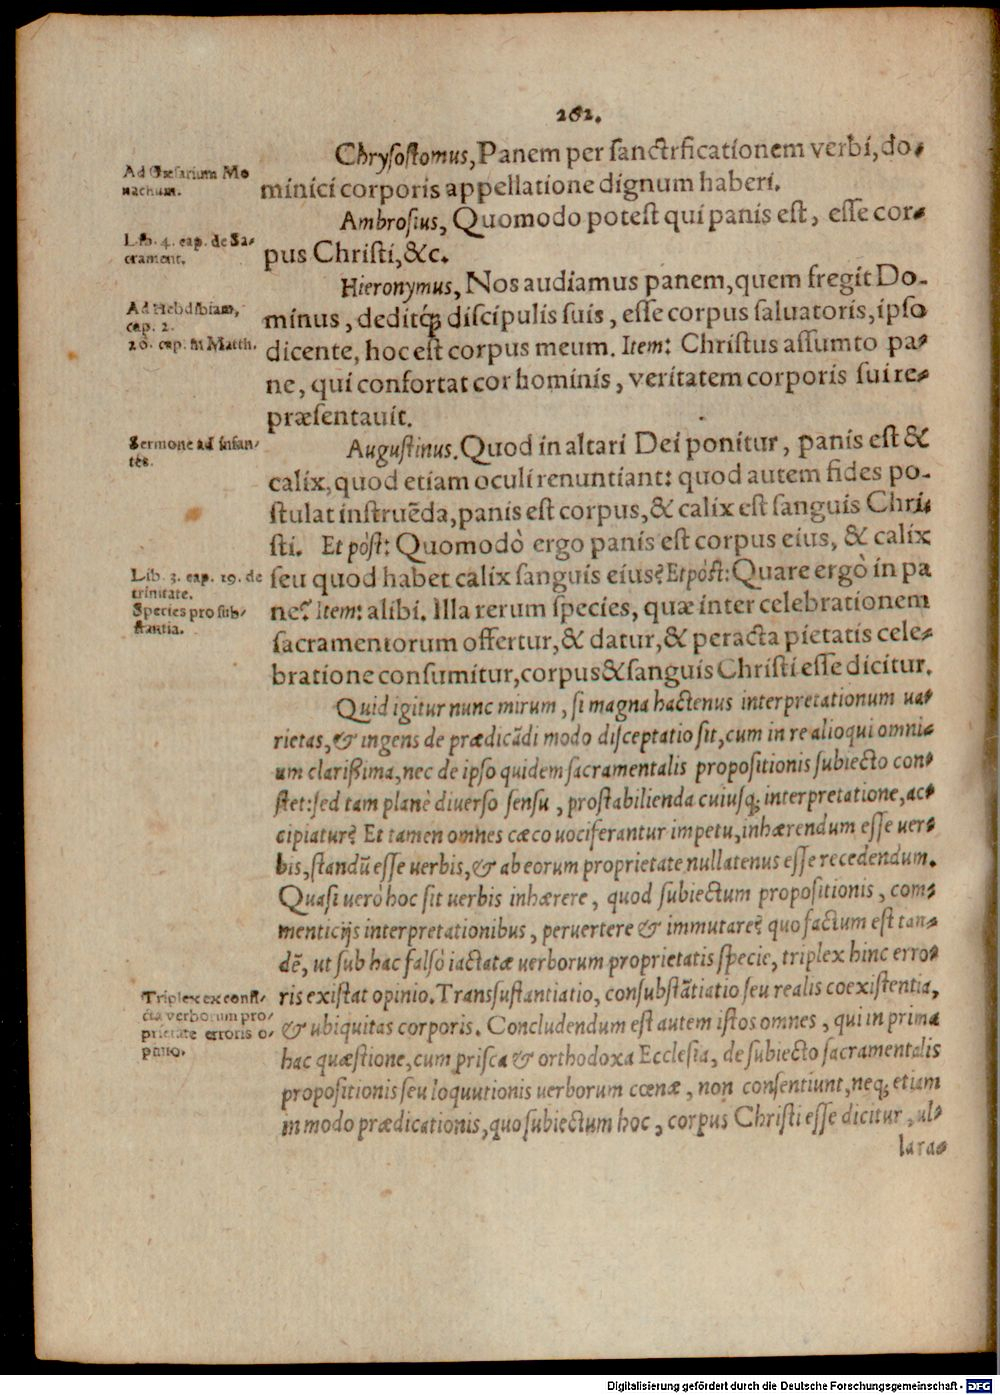 262.
Chrysostomus, Panem per sanctrficationem verbi, do-
minici corporis appellatione dignum haberi.
Ad Cæsarium Mo
nachum.
Ambrosius, Quomodo potest qui panis est, esse cor-
pus Christi, &c.
Lib. 4. cap. de Sa-
crament.
Hieronymus, Nos audiamus panem, quem fregit Do-
minus, deditq́; discipulis suis, esse corpus saluatoris, ipso
dicente, hoc est corpus meum. Item: Christus assumto pa-
ne, qui confortat cor hominis, veritatem corporis sui re-
præsentauit.
Ad Hebdibiam,
cap. 2.
26. cap. in Matth.
Augustinus. Quod in altari Dei ponitur, panis est &
calix, quod etiam oculi renuntiant: quod autem fides po-
stulat instruẽda, panis est corpus, & calix est sanguis Chri-
sti. Et pòst: Quomodò ergo panis est corpus eius, & calix
seu quod habet calix sanguis eius? Et pòst: Quare ergò in pa
ne? Item: alibi. Illa rerum species, quæ inter celebrationem
sacramentorum offertur, & datur, & peracta pietatis cele-
bratione consumitur, corpus & sanguis Christi esse dicitur.
Sermone ad infan-
tes.
Lib. 3. cap. 19. de
trinitate.
Species pro sub-
stantia.
Quid igitur nunc mirum, si magna hactenus interpretationum ua-
rietas, & ingens de prædicãdi modo disceptatio sit, cum in re alioqui omni-
um clarißima, nec de ipso quidem sacramentalis propositionis subiecto con-
stet: sed tam planè diuerso sensu, pro stabilienda cuiusq; interpretatione, ac-
cipiatur? Et tamen omnes cæco uociferantur impetu, inhærendum esse uer-
bis, standũ esse uerbis, & ab eorum proprietate nullatenus esse recedendum.
Quasi uerò hoc sit uerbis inhærere, quod subiectum propositionis, com-
menticijs interpretationibus, peruertere & immutare? quo factum est tan-
dẽ, ut sub hac falsò iactatæ uerborum proprietatis specie, triplex hinc erro-
ris existat opinio. Transsustantiatio, consubstãtiatio seu realis coexistentia,
& ubiquitas corporis. Concludendum est autem istos omnes, qui in prima
hac quæstione, cum prisca & orthodoxa Ecclesia, de subiecto sacramentalis
propositionis seu loquutionis uerborum cœnæ, non consentiunt, neq; etiam
in modo prædicationis, quo subiectum hoc, corpus Christi esse dicitur, ul-
Triplex ex confi-
cta verborum pro-
prietate erroris o-
pinio.
la ra-
Digitalisierung gefördert durch die Deutsche Forschungsgemeinschaft - DFG